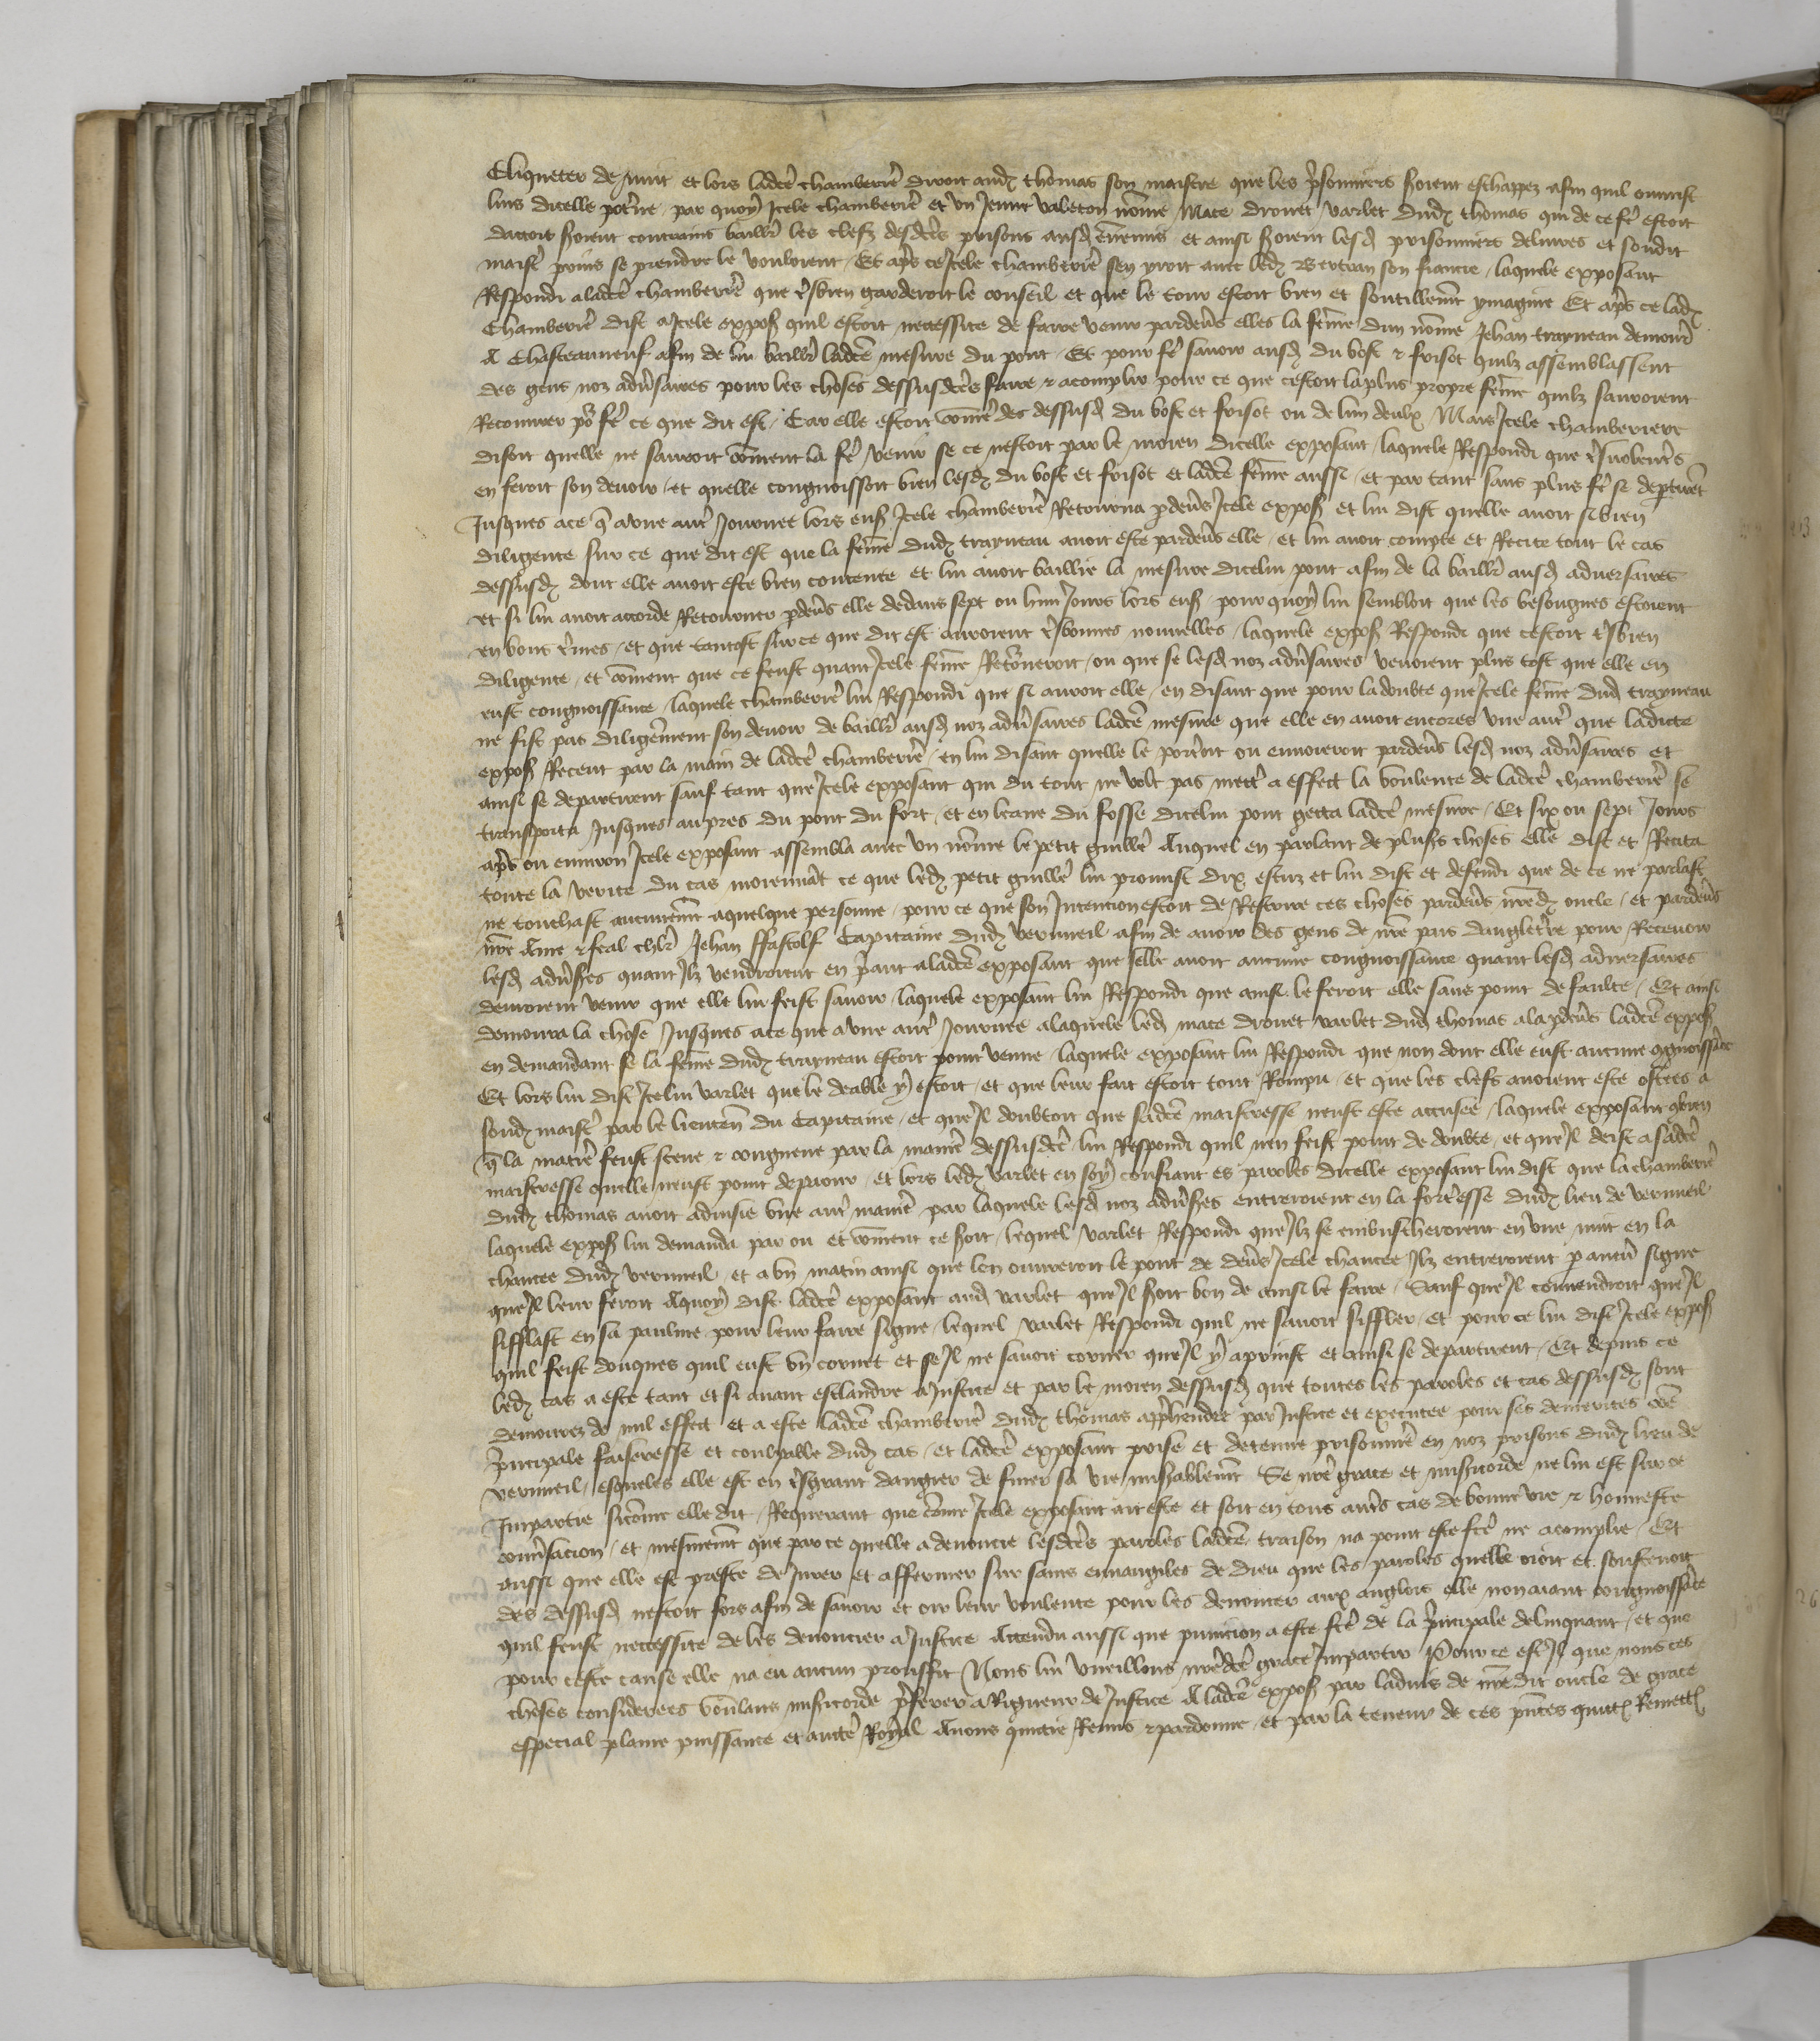 Cliqueter de nuit et lors ladcē chamberiē diroit aud. thomas son maistre que les p̄sonniers seroient eschappez afin quil ouvrist
luis dicelle pot̄ne par quoy Icele chamberiē et un Jeune valeton nōme Mace drouet varlet dud. thomas qui de ce fē estoit
dacort seroient contrains baillē les clefz desdcēs prisons ausd. ēnemis et ainsi seroient lesd. prisonniers delivres et sondit
maistē prins se prendre le vouloient Et ap̄s ce Icele chamberiē sen yroit avec led. Bertran son fiancie laquele exposant
Respondi a ladcē chamberiē que t̄sbien garderoit le conseil et que le tour estoit bien et soutillem̄t ymagine Et ap̄s ce lad.
Chamberiē dist a Icele expos. quil estoit necessite de faire venir pardeūs elles la fēme dun nōme Jehan trayneau demourē
A Chasteauneuf afin de lui baillē ladcē mesure du pont Et pour fē savoir ausd. du bost & frisot quilz assemblassent
des gens noz adūsaires pour les choses dessusdcēs faire & acomplir pour ce que cestoit la plus propre fēme quilz sauroient
Recouvrer po² fē ce que dit est Car elle estoit cōmē des dessusd. du bost et frisot ou de lun deulx Mais Icele chamberiere
disoit quelle ne sauroit cōment la fē venir se ce nestoit par le moien dicelle exposant laquele Respondi que t̄svolent̄s
en feroit son devoir et quelle congnoissoit bien lesd. du bost et frisot et ladcē fēme aussi et par tant sans plus fē se dep̄tiret
Jusques ace q̄ a une aut̄ Journee lors ens. Icele chamberiē Retourna p̄deūs Icele expos. et lui dist quelle avoit si bien
diligente sur ce que dit est que la fēme dud. trayneau avoit este pardeūs elle et lui avoit compte et Recite tout le cas
dessusd. dont elle avoit este bien contente et lui avoit baillie la mesure dicelui pont afin de la baillē ausd. adversaires
et si lui avoit accorde Retourner p̄deūs elle dedans sept ou huit Jours lors ens. pour quoy lui sembloit que les besongnes estoient
en bons t̄mes et que tantost sur ce que dit est auroient t̄sbonnes nouvelles laquele expos. Respondi que cestoit t̄sbien
diligente et cōment que ce feust quant Icele fēme Ret̄neroit ou que se lesd. noz adūsaires venoient plus tost que elle en
eust congnoissance laquele chamberiē lui Respondi que si auroit elle en disant que pour la doubte que Icele fēme dud. trayneau
ne fist pas diligēment son devoir de baillē ausd. noz adūsaires ladcē mesure que elle en avoit encores une aut̄ que ladicte
expos. Receut par la main de ladcē chamberiē en lui disant quelle le port̄oit ou envoieroit pardeūs lesd. noz adūsaires et
ainsi se departirent sauf tant que Icele exposant qui du tout ne volt pas mettē a effect la voulente de ladcē chamberiē se
transporta Jusques aupres du pont du fort et en leaue du fosse dicelui pont getta ladcē mesure Et six ou sept Jours
ap̄s ou environ Icele exposant assembla avec un nōme le petit guillē Auquel en parlant de plus̄s choses elle dist et Recita
toute la verite du cas moiennāt ce que led. petit guillē lui promist dix escuz et lui dist et defendi que de ce ne parlast
ne touchast aucunem̄t a quelque personne pour ce que son Intencion estoit de Rescrire ces choses pardeūs nr̄ed. oncle et pardeūs
nr̄e Ame & feal chlr̄ Jehan ffastolf Capitaine dud. verneuil afin de avoir des gens de nr̄e pais dangletr̄e pour Recevoir
lesd. adūs̄es quant Ilz vendroient en p̄ant a ladcē exposant que selle avoit aucune congnoissance quant lesd. adversaires
devroient venir que elle lui feist savoir laquele exposant lui Respondi que ainsi le feroit elle sans point de faulte Et ainsi
demoura la chose Jusques ace que a une aut̄ Journee a laquele led. mace drouet varlet dud. thomas ala p̄deūs ladcē expos.
en demandant se la fēme dud. trayneau estoit point venue laquele exposant lui Respondi que non dont elle eust aucune ɔgnoissāce
Et lors lui dist Icelui varlet que le deable y estoit et que leur fait estoit tout Rompu et que les clefs avoient este ostees a
sond. maistē par le lieuten̄ du Capitaine et que Il doubtoit que sadcē maistresse neust este accusee laquele exposant ɔbien
q̄ la matiē feust sceue & congneue par la maniē dessusdcē lui Respondi quil nen feist point de doubte et que Il deist a sadcē
maistresse quelle neust point de paour et lors led. varlet en soy confiant es paroles dicelle exposant lui dist que la chamberiē
dud. thomas avoit advisie une aut̄ maniē par laquele lesd. noz adūs̄es entreroient en la fort̄esse dud. lieu de verneuil
laquele expos. lui demanda par ou et cōment ce seroit lequel varlet Respondi que Ilz se embuscheroient en une nuit en la
chaucee dud. verneuil et a un matin ainsi que len ouvreroit le pont de deūs Icele chaucee Ilz entreroient p̄ aucū signe
que Il leur feroit A quoy dist ladcē exposant aud. varlet que Il seroit bon de ainsi le faire Sauf que Il convendroit que Il
sifflast en sa paulme pour leur faire signe lequel varlet Respondi quil ne savoit siffler et pour ce lui dist Icele expos.
quil feist donques quil eust un cornet et se Il ne savoit corner que Il y aprinst et ainsi se departirent Et depuis ce
led. cas a este tant et si avant esclandre a Justice et par le moien dessusd. que toutes les paroles et cas dessusd. sont
demourez de nul effect et a este ladcē chamberiē dud. thomas app̄hendee par Justice et executee pour ses demerites cōe
p̄ncipale faiseresse et coulpable dud. cas et ladcē exposant prise et detenue prisonniē en noz prisons dud. lieu de
verneuil esqueles elle est en t̄sgrant dangier de finer sa vie mis̄ablem̄t Se nr̄e grace et mis̄icorde ne lui est sur ce
Impartie sicōme elle dit Requerant que cōme Icele exposant ait este et soit en tous aut̄s cas de bonne vie & honneste
conūsacion et mesmem̄t que par ce quelle a denoncie lesdcēs paroles ladcē traison na point este fcē ne acomplie Et
aussi que elle est preste de Jurer et affermer sur sains euvangiles de dieu que les paroles quelle oioit et soustenoit
des dessusd. nestoit fors afin de savoir et oir leur voulente pour les denoncer aux anglois elle non aiant congnoissāce
quil feust neccessite de les denoncier a Justice Attendu aussi que punicion a este fcē de la p̄ncipale delinquant et que
pour ceste cause elle na eu aucun prouffit Nous lui vueillons nr̄edcē grace Impartir Pour ce est Il que nous ces
choses considerees voulans mis̄icorde p̄ferer a Rigueur de Justice A ladcē expos. par ladvis de nr̄edit oncle de grace
especial plaine puissance et auctē Royal Avons quictie Remis & pardonne et par la teneur de ces pn̄tes quict. Remett.